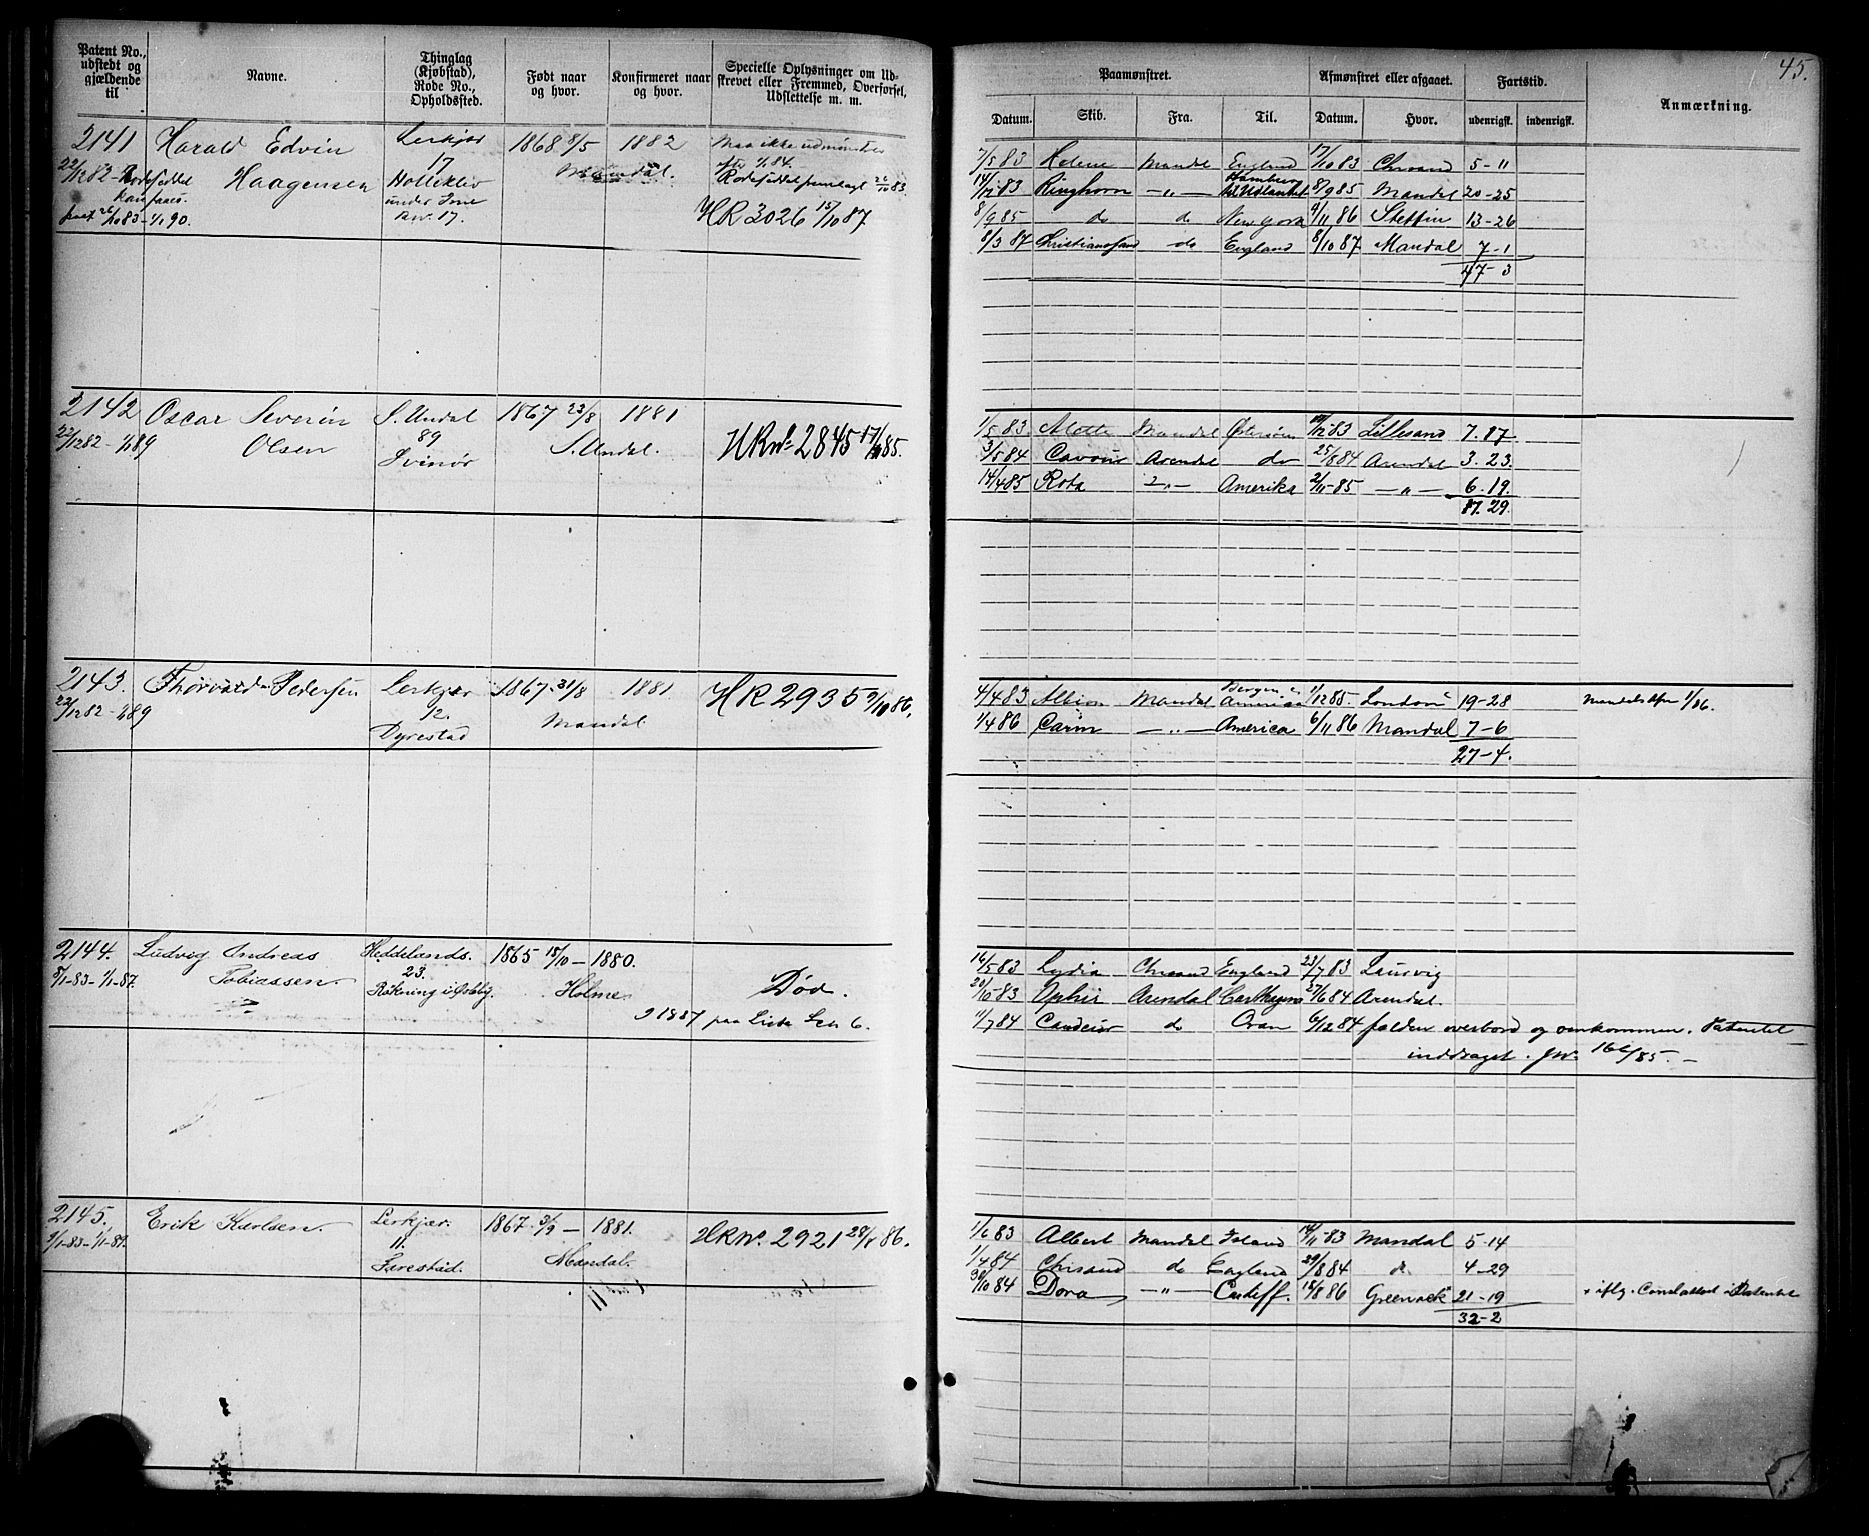 45.
Patent No., udstedt og gjældende til
Navne.
Thinglag (Kjøbstad), Rode No., Opholdssted.
Født naar og hvor.
Konfirmeret naar og hvor.
Specielle Oplysninger om Udskrevet eller Fremmed, Overførsel, Udslettelse m. m.
Paamønstret.
Afmønstret eller afgaaet.
Fartstid.
Anmærkning.
Datum. Skib. Fra. Til. Datum. Hvor. udenrigsk. indenrigsk.
2141 Harald Edvin Lerkjær 1868 8/5 1882 Maa ikke udmønstres
22/12 82 Rodeseddel Haagensen 17 Mandal. 1/1 84.
Holleklev Rodeseddel 26/10 83
under
No. 17. HR 3026 15/10 87
7/5 83 Helene Mandal England 17/10 83 Chrsand 5-11
14/12 83 Ringhorn -"- Hamburg 8/9 85 Mandal 20-25
8/9 85 do do New York 4/11 86 Stettin 13-26
8/3 87 Christianssand do England 8/10 87 Mandal 7-1
47-3
2142 Oscar Severin S. Undal 1867 23/8 1881
22/12 82 - 1/1 89 Olsen 89 S. Undal. HR No 2845 17/11 85.
Svinør
1/5 83 Mandal Østersøen 83 Lillesand 7.17
3/5 84 Cavour Arendal do 25/8 84 Arendal 3.23.
14/4 85 Rota -"- Amerika 2/11-85 -"- 6.19.
17.29.
2143. Thorvald Pedersen Lerkjær 1867. 31/8 1881. HR 2935 9/10 86.
22/12 82 - 1/1 89 12. Mandal
Dyrestad
4/4 83 Albion Mandal Bergen Amerika 1/12 85. London 19-28
1/4 86 Carin -"- America 6/11 86 Mandal 7-6
27-4.
2144. Ludvig Andreas Heddelands. 1865 18/10 - 1880.
8/1-83-1/1-87. Tobiassen 23. Holme. Død.
1887 paa Liste 6.
16/5 83 Lydia Chrsand England 23/7 83 Laurvig
20/10-83 Ophir Arendal Carthagena 27/6 84 Arendal.
11/7 84 do Oran 6/12 84 falden overbord og omkommen. Patentet
inddraget. JNo. 166/85. -
2145. Erik Karlsen. Lerkjær. 1867. 3/9 - 1881. HR No. 2921 28/8 86.
9/1-83-1/1-89. 11. Mandal.
Farestad.
1/6 83 Albert Mandal Island 14/11-83 Mandal 5-14
1/4 84 Chrsand do England 29/8 84 do 4-29
30/10 84 Dora -"- Cardiff. 18/8 86 Greenock 21-19
32-2